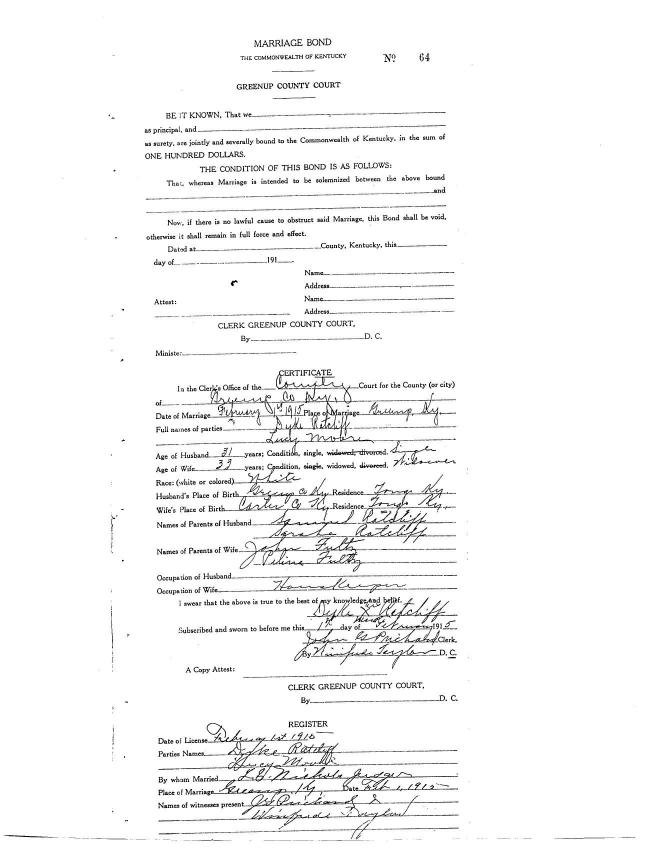 MARRIAGE BOND
THE COMMONWEALTH OF KENTUCKY
Nº 64
GREENUP COUNTY COURT
BE IT KNOWN, That we
as principal, and
as surety, are jointly and severally bound to the Commonwealth of Kentucky, in the sum of
ONE HUNDRED DOLLARS.
THE CONDITION OF THIS BOND IS AS FOLLOWS:
That, whereas Marriage is intended to be solemnized between the above bound
and
Now, if there is no lawful cause to obstruct said Marriage, this Bond shall be void,
otherwise it shall remain in full force and effect.
Dated at County, Kentucky, this
day of 191
Name
Address
Attest: Name
Address
CLERK GREENUP COUNTY COURT,
By D. C.
Minister
CERTIFICATE
In the Clerk's Office of the Country Court for the County (or city)
of Greenup Co Ky,
Date of Marriage February 1st 1915 Place of Marriage Greenup, Ky.
Full names of parties Dyke Ratcliff
Lucy Moore
Age of Husband 31 years; Condition, single, widowed, divorced, Single
Age of Wife 33 years; Condition, single, widowed, divorced, Widower
Race: (white or colored) White
Husband's Place of Birth Greenup Co Ky Residence Tongs Ky.
Wife's Place of Birth Carter Co Ky Residence Tongs Ky.
Names of Parents of Husband Samuel Ratcliff
Sarah Ratcliff
Names of Parents of Wife John Fultz
Fultz
Occupation of Husband
Occupation of Wife HouseKeeper
I swear that the above is true to the best of my knowledge and belief.
Dyke X Ratcliff
Subscribed and sworn to before me this 1st day of February 1915
John G Prichard Clerk.
By Winifrede Taylor D. C.
A Copy Attest:
CLERK GREENUP COUNTY COURT,
By D. C.
REGISTER
Date of License February 1st 1915
Parties Names Dyke Ratcliff
Lucy Moore
By whom Married Nichols Judge
Place of Marriage Greenup Ky Date Feb 1, 1915
Names of witnesses present Prichard &
Winifrede Taylor